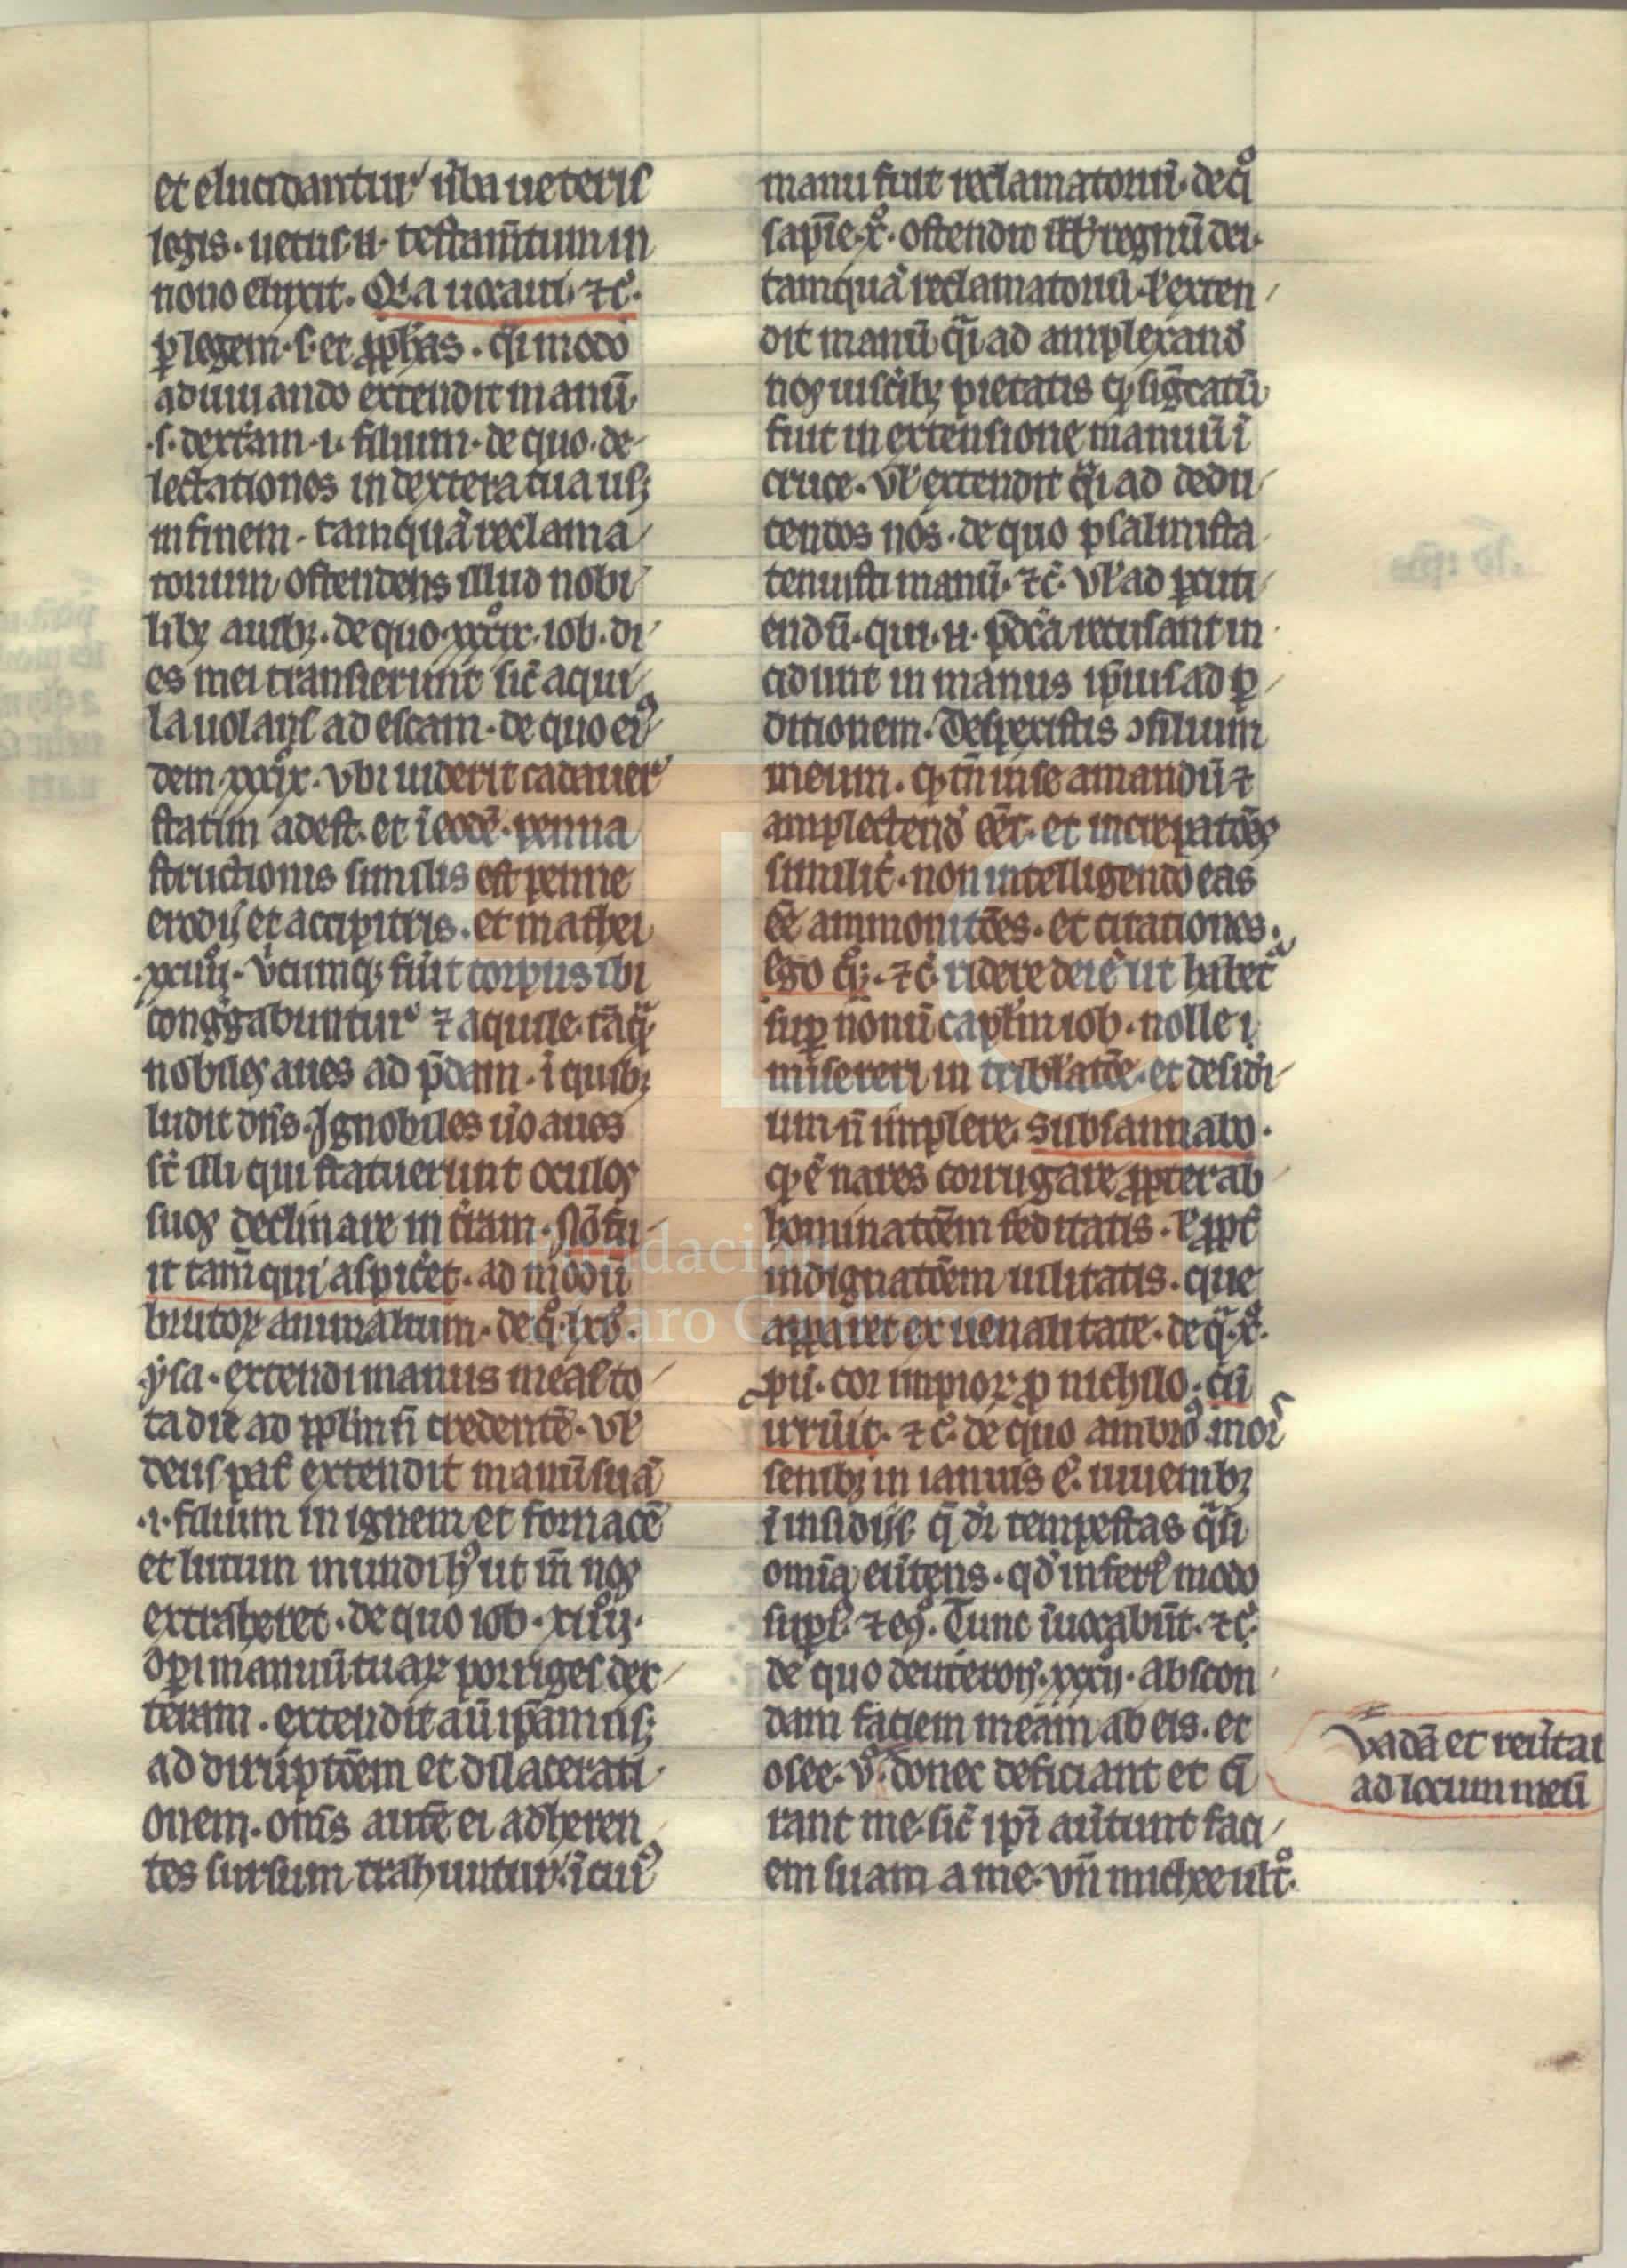 et elucidantur ũba ueteris
legis · uetus · ũ · testam̃tum in
nouo eluxit · Q̃a uocaui · ⁊c̃ ·
ꝑ legem · s · et ꝓph̃as · q̃i modo
adiuuando extendit manũ
· s · dext̃am · i · filium · de quo · de
lectationes in dextera tua usꝫ
in finem · tamquã reclama
torium ostendens illud nobi
libꝫ auibꝫ · de quo · xxxix · iob · di
es mei transierunt sic̃ aqui
la uolans ad escam · de quo eiꝰ
dem xxxix · vbi uiderit cadauer
statim adest · et ĩ eodẽ · penna
structionis similis est penne
erodij et accipitris · et mathei
· xxiiij · v̾cumqꝫ fũit corpus ibi
cong̃gabuntur ⁊ aquile · tãq̃
nobiles aues ad p̃dam · ĩ quibꝫ
ludit dñs · Ignobiles ũo aues
sc̃ illi qui statuerunt oculos
suos declinare in t̃ram · Nõ fu
it tam̃ qui aspic̾et · ad modũ
brutoꝝ animalium · de q̊ · lxv̊ ·
ysa · extendi manus meas to
ta die ad ppl̃m ñ credentẽ · vl̾
deus pat̾ extendit manũ suã
· i · filium in ignem et fornacẽ
et lutum mundi hꝰ ut iñ nos
extraheret · de quo iob · xiiij ·
op̃i manuũ tuaꝝ porriges dex
teram · extendit aũ ip̃am usꝫ
ad dirupt̃oem et dilacerati
onem · om̃s autẽ ei adheren
tes sursum trahuntur · ĩ cuiꝰ
manu fuit reclamatoriũ · de q̊
sapiẽ · x̊ · ostendit ill̾ regnũ dei ·
tamquã reclamatoriũ · l̾ exten
dit manũ q̃i ad amplexand̾
nos uisc̾ibꝫ pietatis qͥ sig̃catũ
fuit in extensione manuũ ĩ
cruce · vl̾ extendit q̃i ad dedu
cendos nos · de quo psalmista
tenuisti manũ · ⁊c̃ · vl̾ ad p̾cuti
endũ · qui · ũ · p̃dc̃a recusant in
cidunt in manus ip̃ius ad ꝑ
ditionem · Despexistis ɔsilium
meum · qͥ tñ in se amandũ ⁊
amplectend̾ eẽt · et increpat̃oes
similit̾ · non intelligendo eas
eẽ ammonit̃oes · et citationes ·
Ego q̊qꝫ · ⁊c̃ ridere dei ẽ ut habet̾
suꝑ nonũ capl̃m iob · nolle ĩ
misereri in tribl̾at̃oe · et desid̾i
um ñ implere · Subsannabo ·
qͥ ẽ nares corrugare ꝓpter ab
hominat̃oem feditatis · l̾ ꝓpt̾
indignat̃oem uilitatis · que
apparet ex uenalitate · de q̃ · x̊ ·
pũ · cor impioꝝ ꝓ nichilo · cũ
irrũit · ⁊c̃ · de quo ambroꝰ · mors
senibꝫ in ianuis ẽ · iuuenibꝫ
ĩ insidijs · q̃ dr̃ tempestas q̃si
omĩa eũtens · qd̾ infert̾ modo
sup̾l · ⁊ eqͦ · Tunc ĩuocabũt · ⁊c̃
de quo deuteroñ · xxxij · abscon
dam faciem meam ab eis · et
osee · v̊ · donec deficiant et q̃
rant me · sic̃ ip̃i aũtunt faci
em suam a me · vñ michee ult̊ ·
vadã et reũtar
ad locum meũ